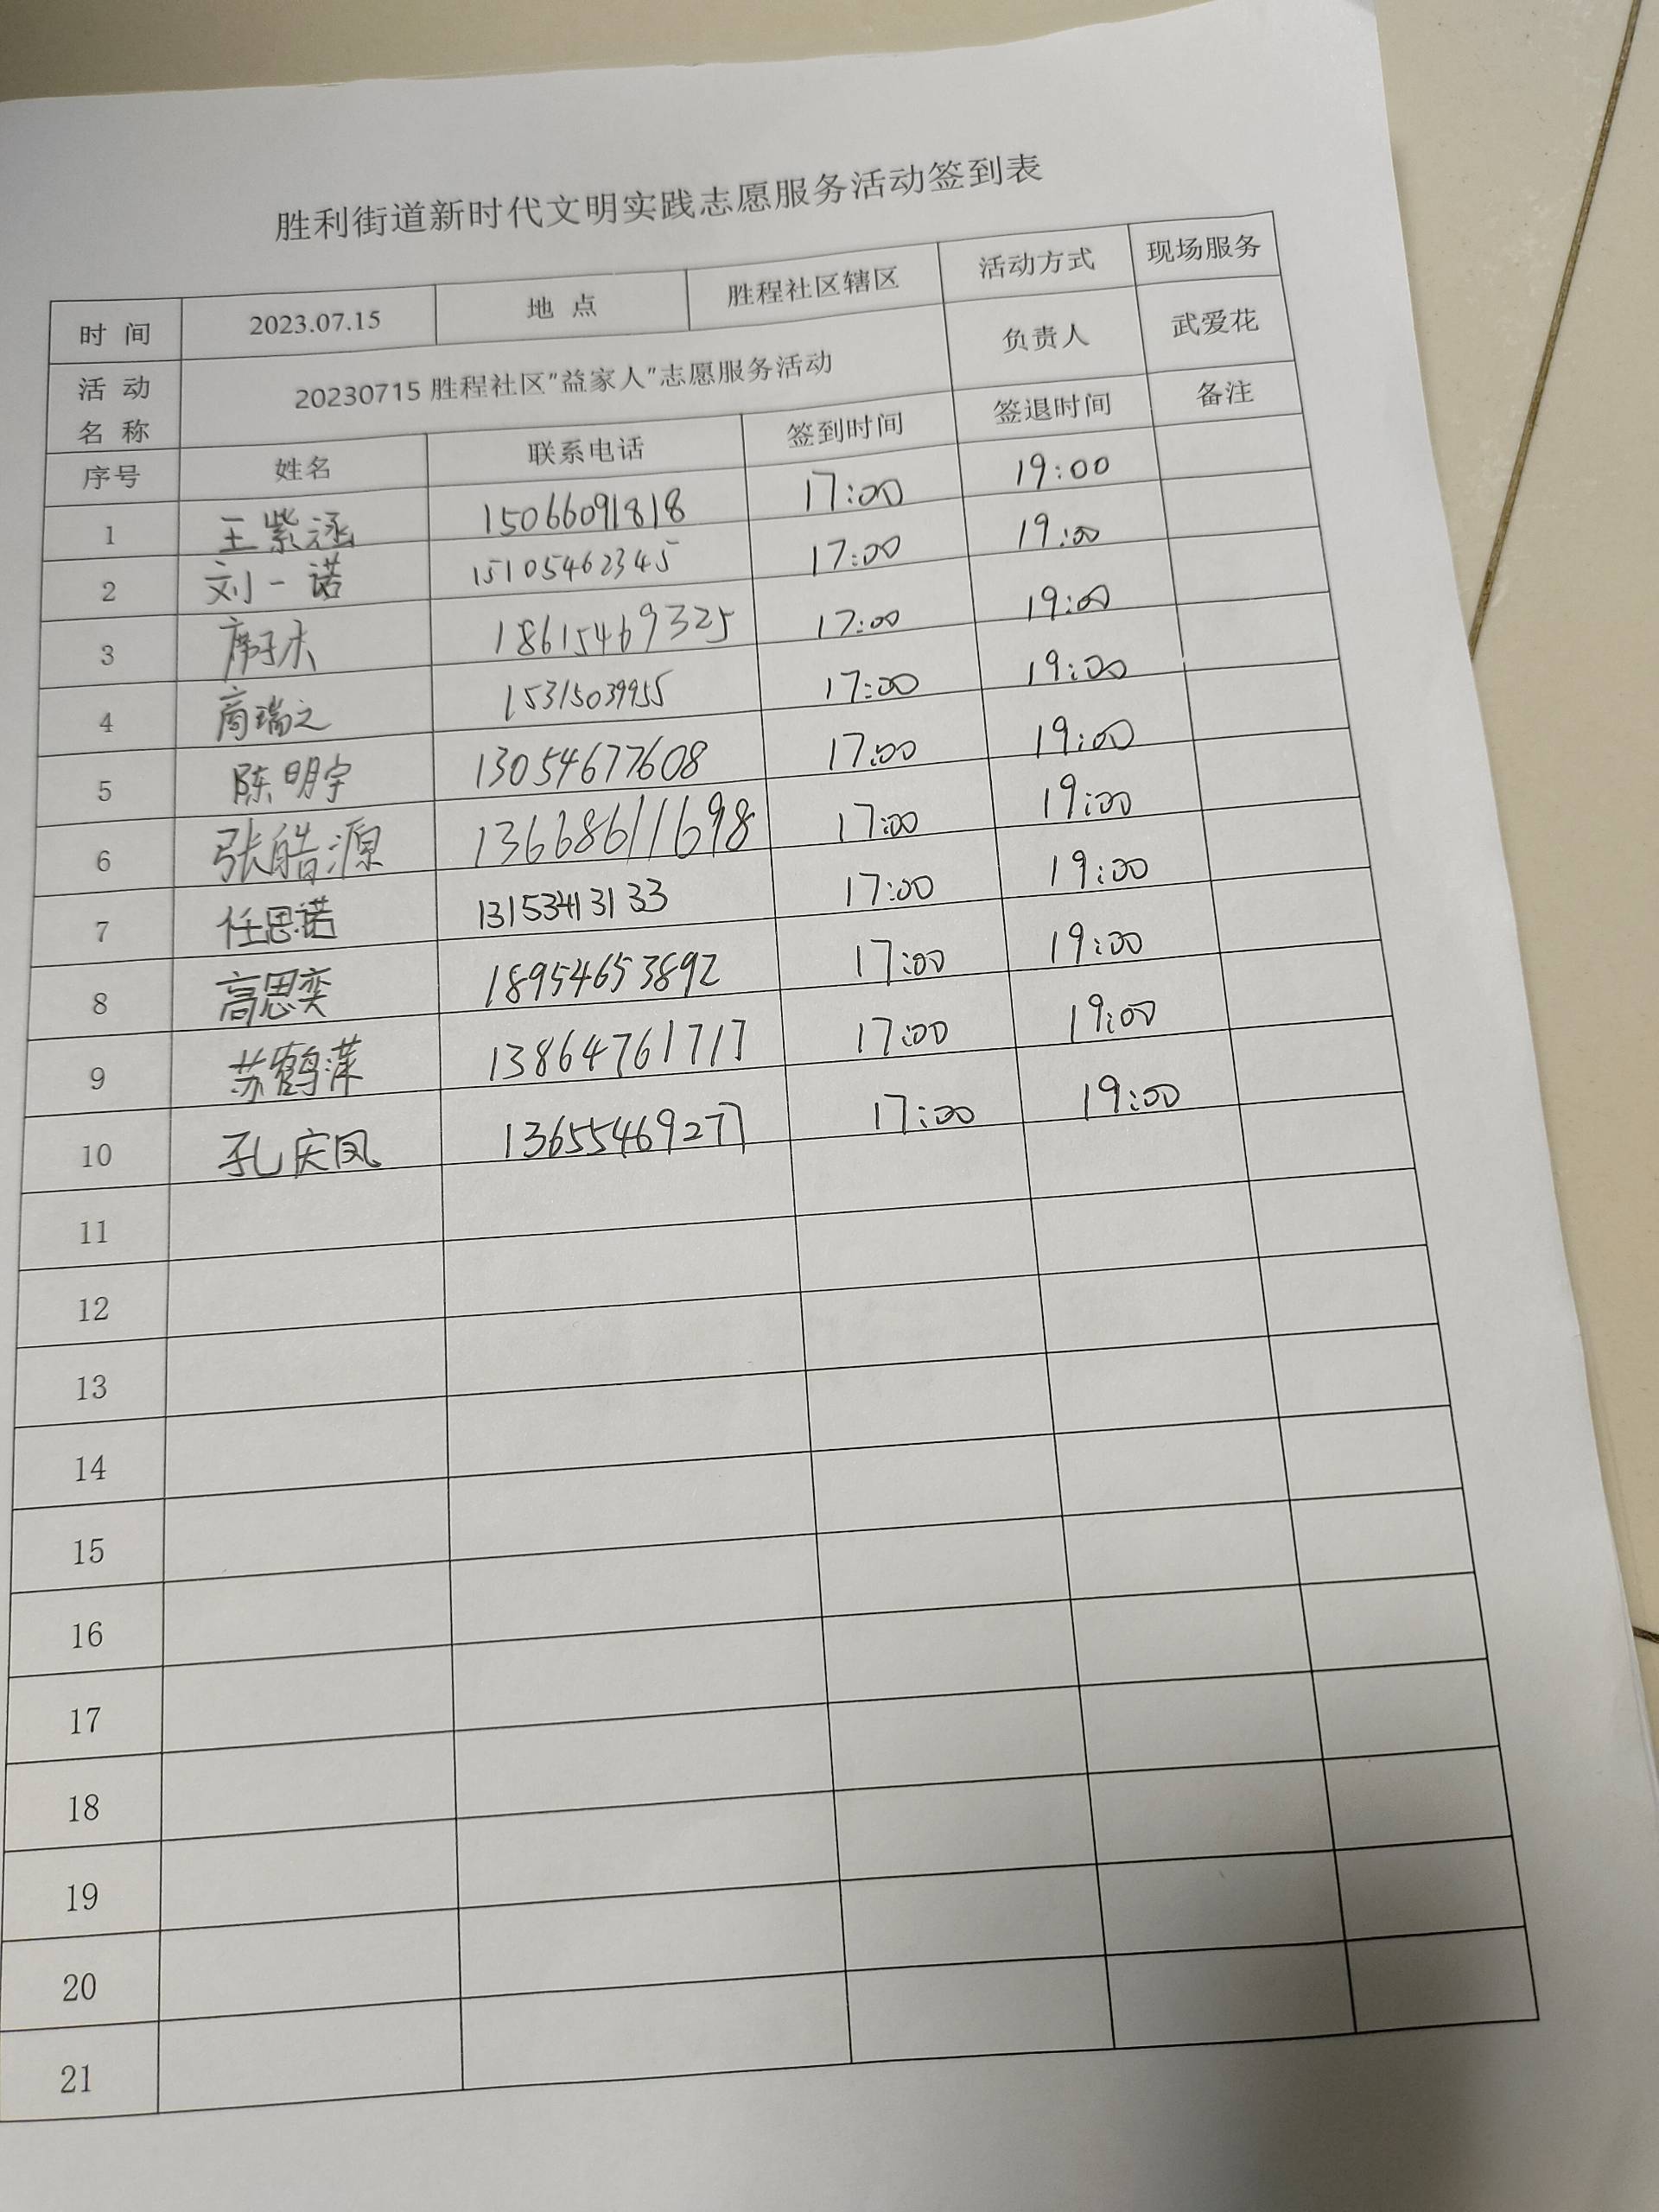 胜利街道新时代文明实践志愿服务活动签到表
时 间 2023.07.15 地 点 胜程社区辖区 活动方式 现场服务
活 动 名 称 20230715 胜程社区"益家人"志愿服务活动 负责人 武爱花
序号 姓名 联系电话 签到时间 签退时间 备注
1 王紫涵 15066091818 17:00 19:00
2 刘一诺 15105462345 17:00 19:00
3 18615469325 17:00 19:00
4 商瑞之 15315039955 17:00 19:00
5 陈明宇 13054677608 17:00 19:00
6 张皓源 13668611698 17:00 19:00
7 任思诺 13153413133 17:00 19:00
8 高思奕 18954653892 17:00 19:00
9 苏鹤萍 13864761717 17:00 19:00
10 孔庆凤 13655469277 17:00 19:00
11
12
13
14
15
16
17
18
19
20
21